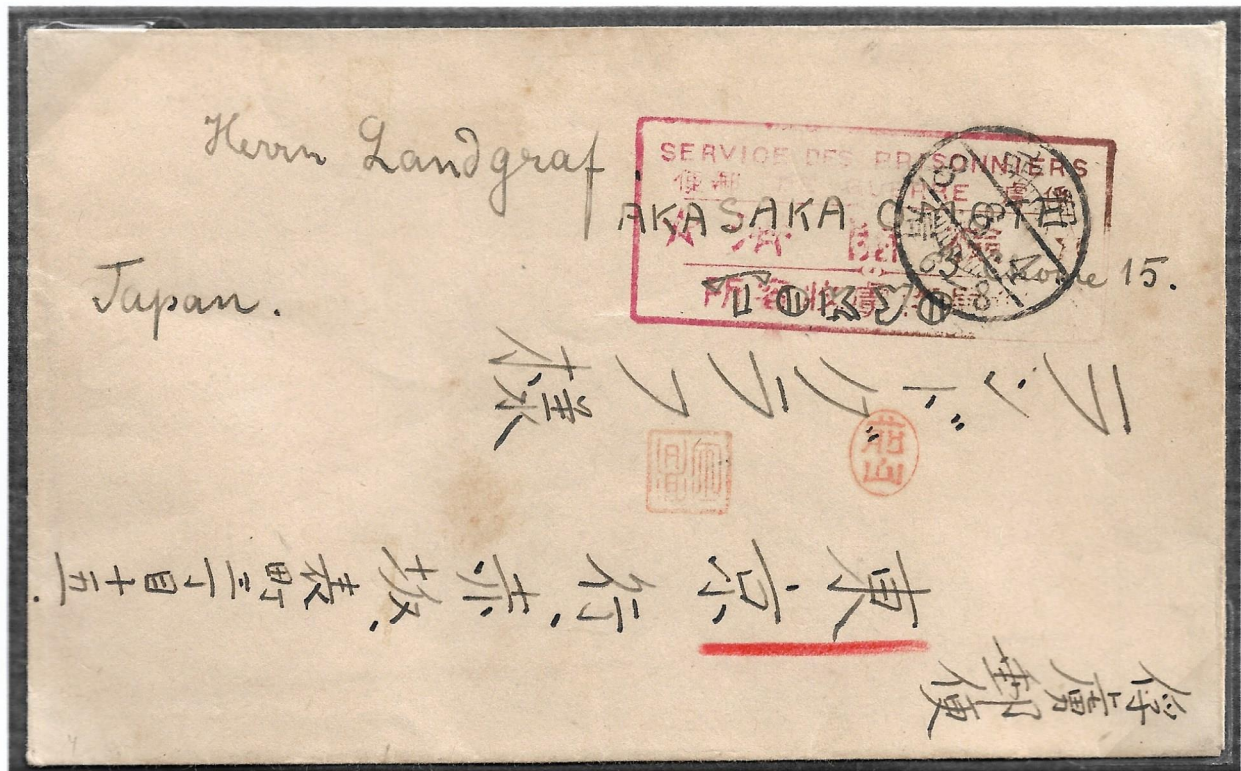 Herrn Landgraf
SERVICE DES PRISONNIERS
DE GUERRE
AKASAKA
15.
Japan.
ランドグラフ
様
東京行、赤坂、表町三丁目十五.
俘虜
郵便